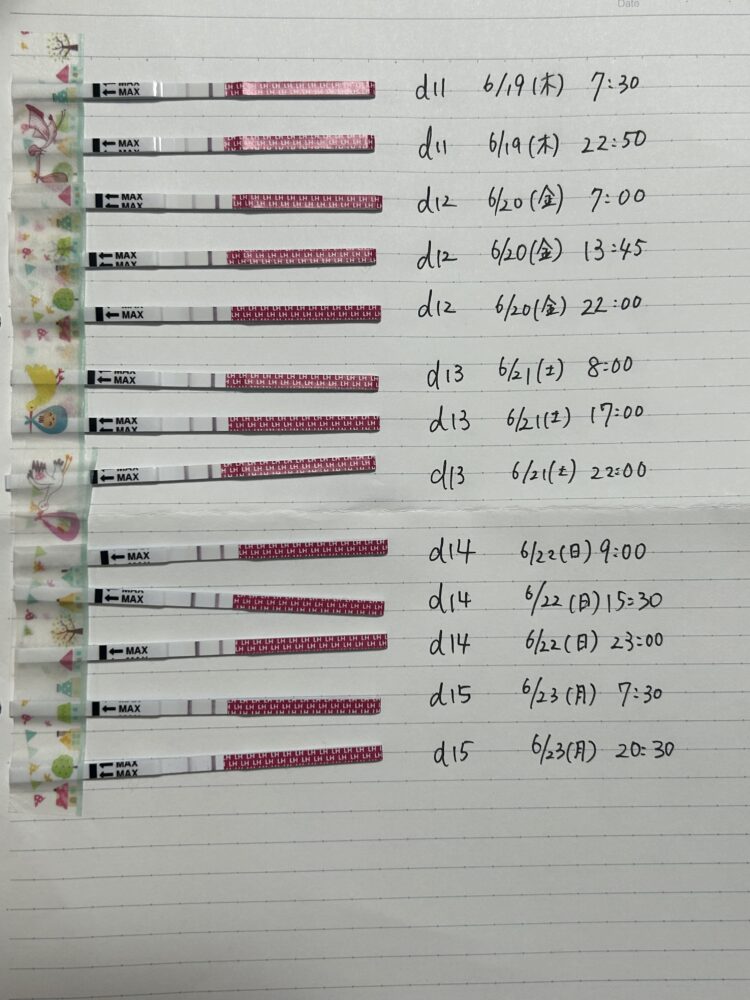 Date
MAX
MAX d11 6/19(木) 7:30
MAX d11 6/19(木) 22:50
MAX
MAX
MAX d12 6/20(金) 7:00
MAX d12 6/20(金) 13:45
MAX
MAX d12 6/20(金) 22:00
MAX
MAX d13 6/21(土) 8:00
MAX
MAX d13 6/21(土) 17:00
MAX
MAX d13 6/21(土) 22:00
MAX d14 6/22(日) 9:00
MAX d14 6/22(日) 15:30
MAX d14 6/22(日) 23:00
MAX d15 6/23(月) 7:30
MAX
MAX d15 6/23(月) 20:30